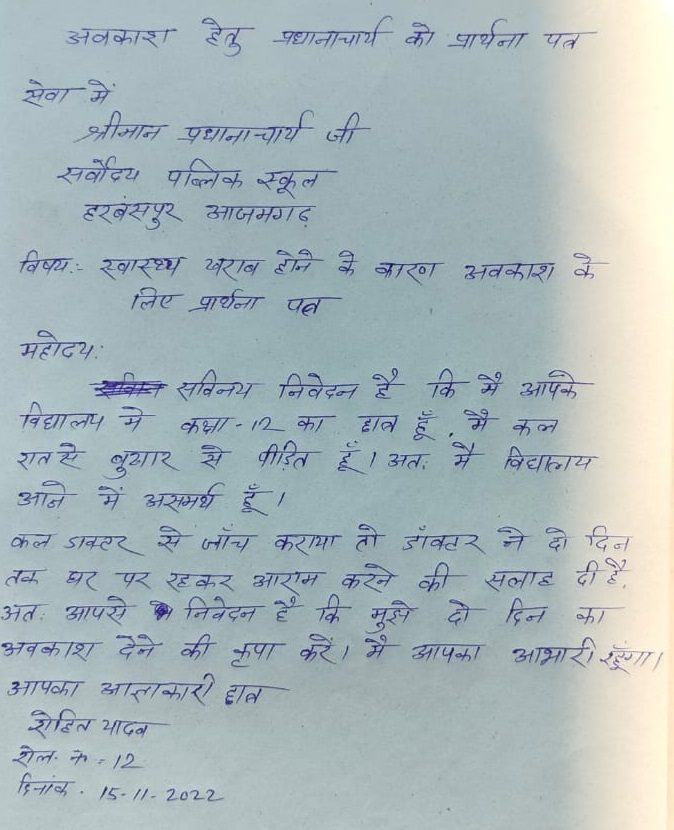 अवकाश हेतु प्रधानाचार्य को प्रार्थना पत्र
सेवा में
श्रीमान प्रधानाचार्य जी
सर्वोदय पब्लिक स्कूल
हरबंसपुर आजमगढ़
विषय:- स्वास्थ्य खराब होने के कारण अवकाश के
लिए प्रार्थना पत्र
महोदय:
सविनय निवेदन है कि मै आपके
विद्यालय मे कक्षा-12 का छात्र हूँ. मै कल
रात से बुखार से पीड़ित हूँ। अत: मै विद्यालय
आने में असमर्थ हूँ।
कल डाक्टर से जाँच कराया तो डॉक्टर ने दो दिन
तक घर पर रहकर आराम करने की सलाह दी है.
अत: आपसे निवेदन है कि मुझे दो दिन का
अवकाश देने की कृपा करें। मै आपका आभारी रहूँगा।
आपका आज्ञाकारी छात्र
रोहित यादव
रोल. न. = 12
दिनांक. 15-11-2022